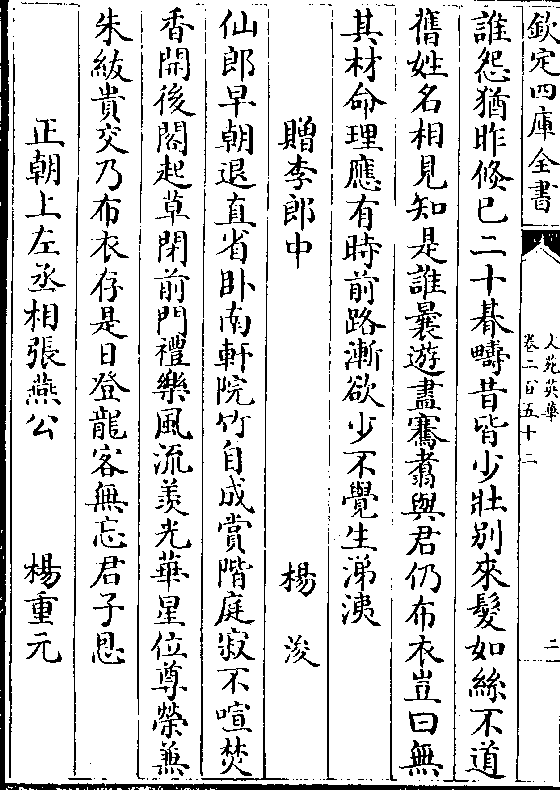 欽定四庫全書
文苑英華
卷二百五十二
二
誰怨猶昨倐已二十朞疇昔皆少壯别來髮如絲不道
舊姓名相見知是誰曩遊盡騫翥與君仍布衣豈曰無
其材命理應有時前路漸欲少不覺生涕洟
贈李郎中 楊浚
仙郎早朝退直省卧南軒院竹自成賞階庭寂不喧焚
香開後閣起草閉前門禮樂風流羨光華星位尊榮兼
朱紱貴交乃布衣存是日登龍客無忘君子恩
正朝上左丞相張燕公 楊重元